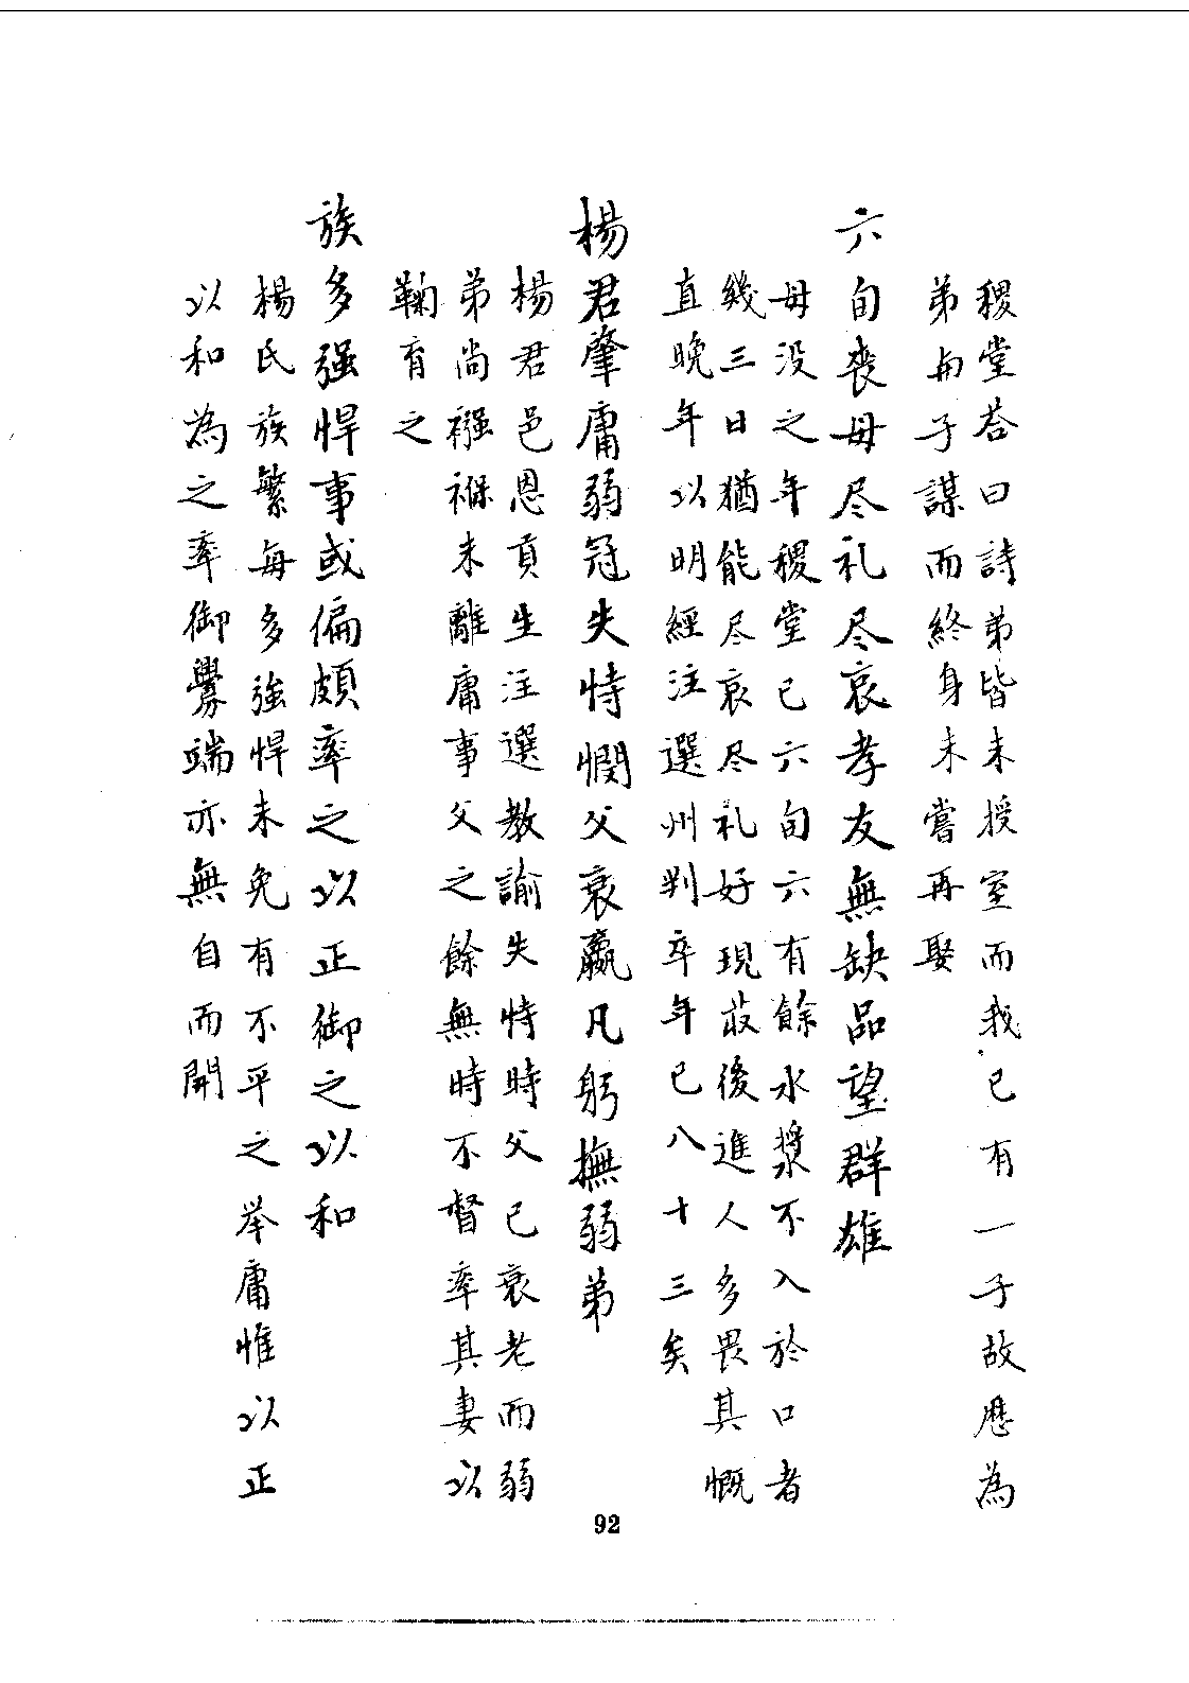 稷堂荅曰詩弟皆未授室而我已有一子故歷為
弟甪子謀而終身未嘗再娶
六旬丧母尽礼尽哀孝友無缺品望群雄
母没之年稷堂已六旬六有餘水漿不入於口者
幾三日猶能尽哀尽礼好現㪚後進人多畏其慨
直晚年以明經注選州判卒年已八十三矣
楊君肇庸弱冠失恃憫父衰羸凡躬撫弱弟
楊君邑恩貢生注選教諭失恃時父已衰老而弱
弟尚襁褓未離庸事父之餘無時不督率其妻以
鞠育之
族多强悍事或偏頗率之以正御之以和
楊氏族繁每多強悍未免有不平之举庸惟以正
以和為之率御釁端亦無自而開
92